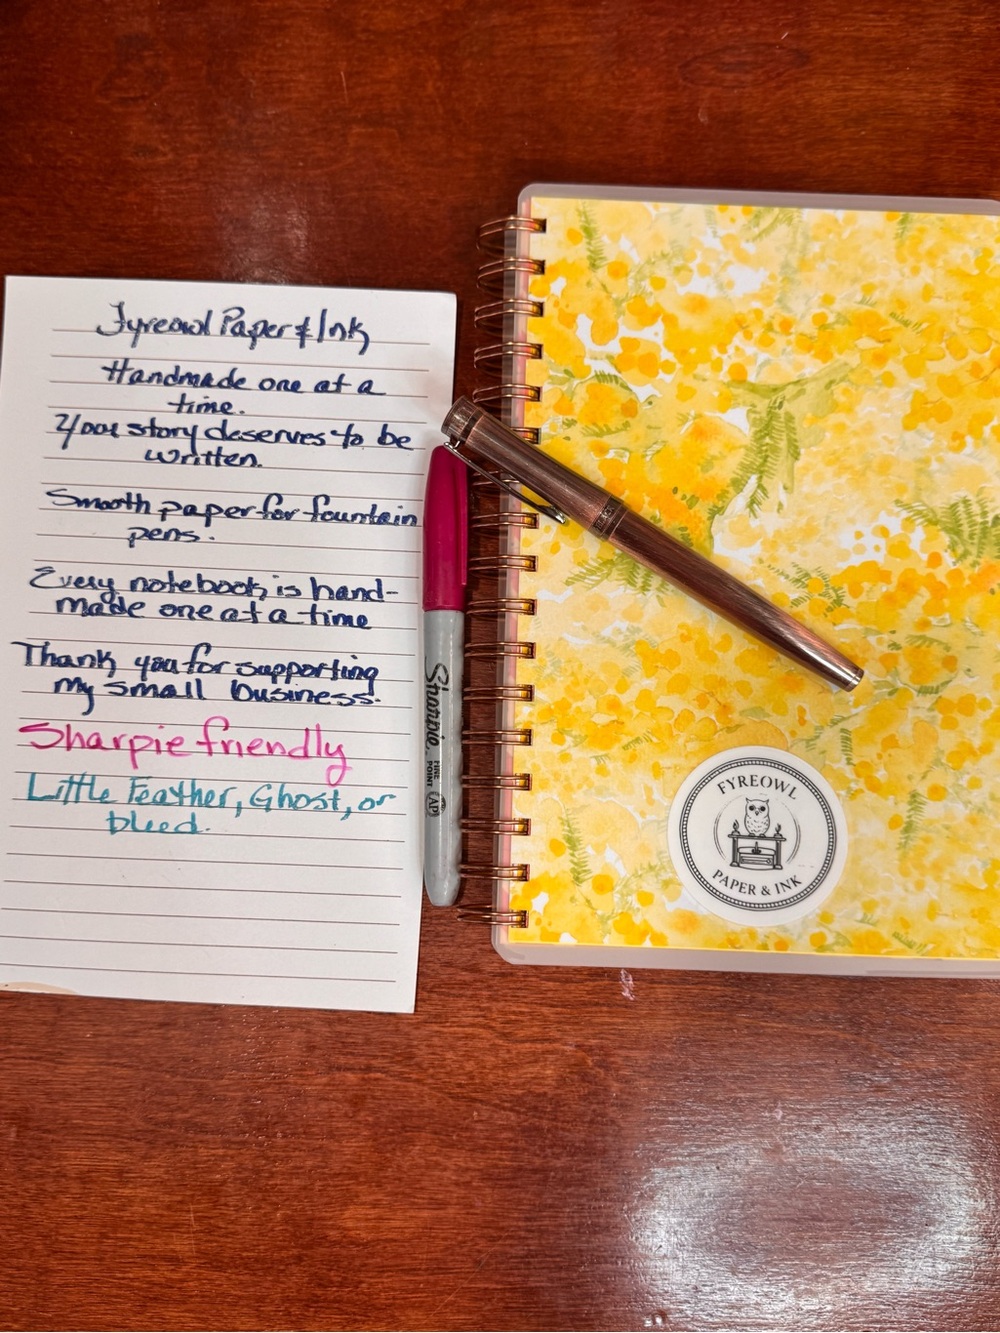 Fyreowl Paper & Ink
Handmade one at a
time.
Your story deserves to be
written.
Smooth paper for fountain
pens.
Every notebook is hand-
made one at a time
Thank you for supporting
my small business.
Sharpie friendly
Little Feather, Ghost, or
bleed.
Sharpie.
FINE
POINT
AP
FYREOWL
PAPER & INK